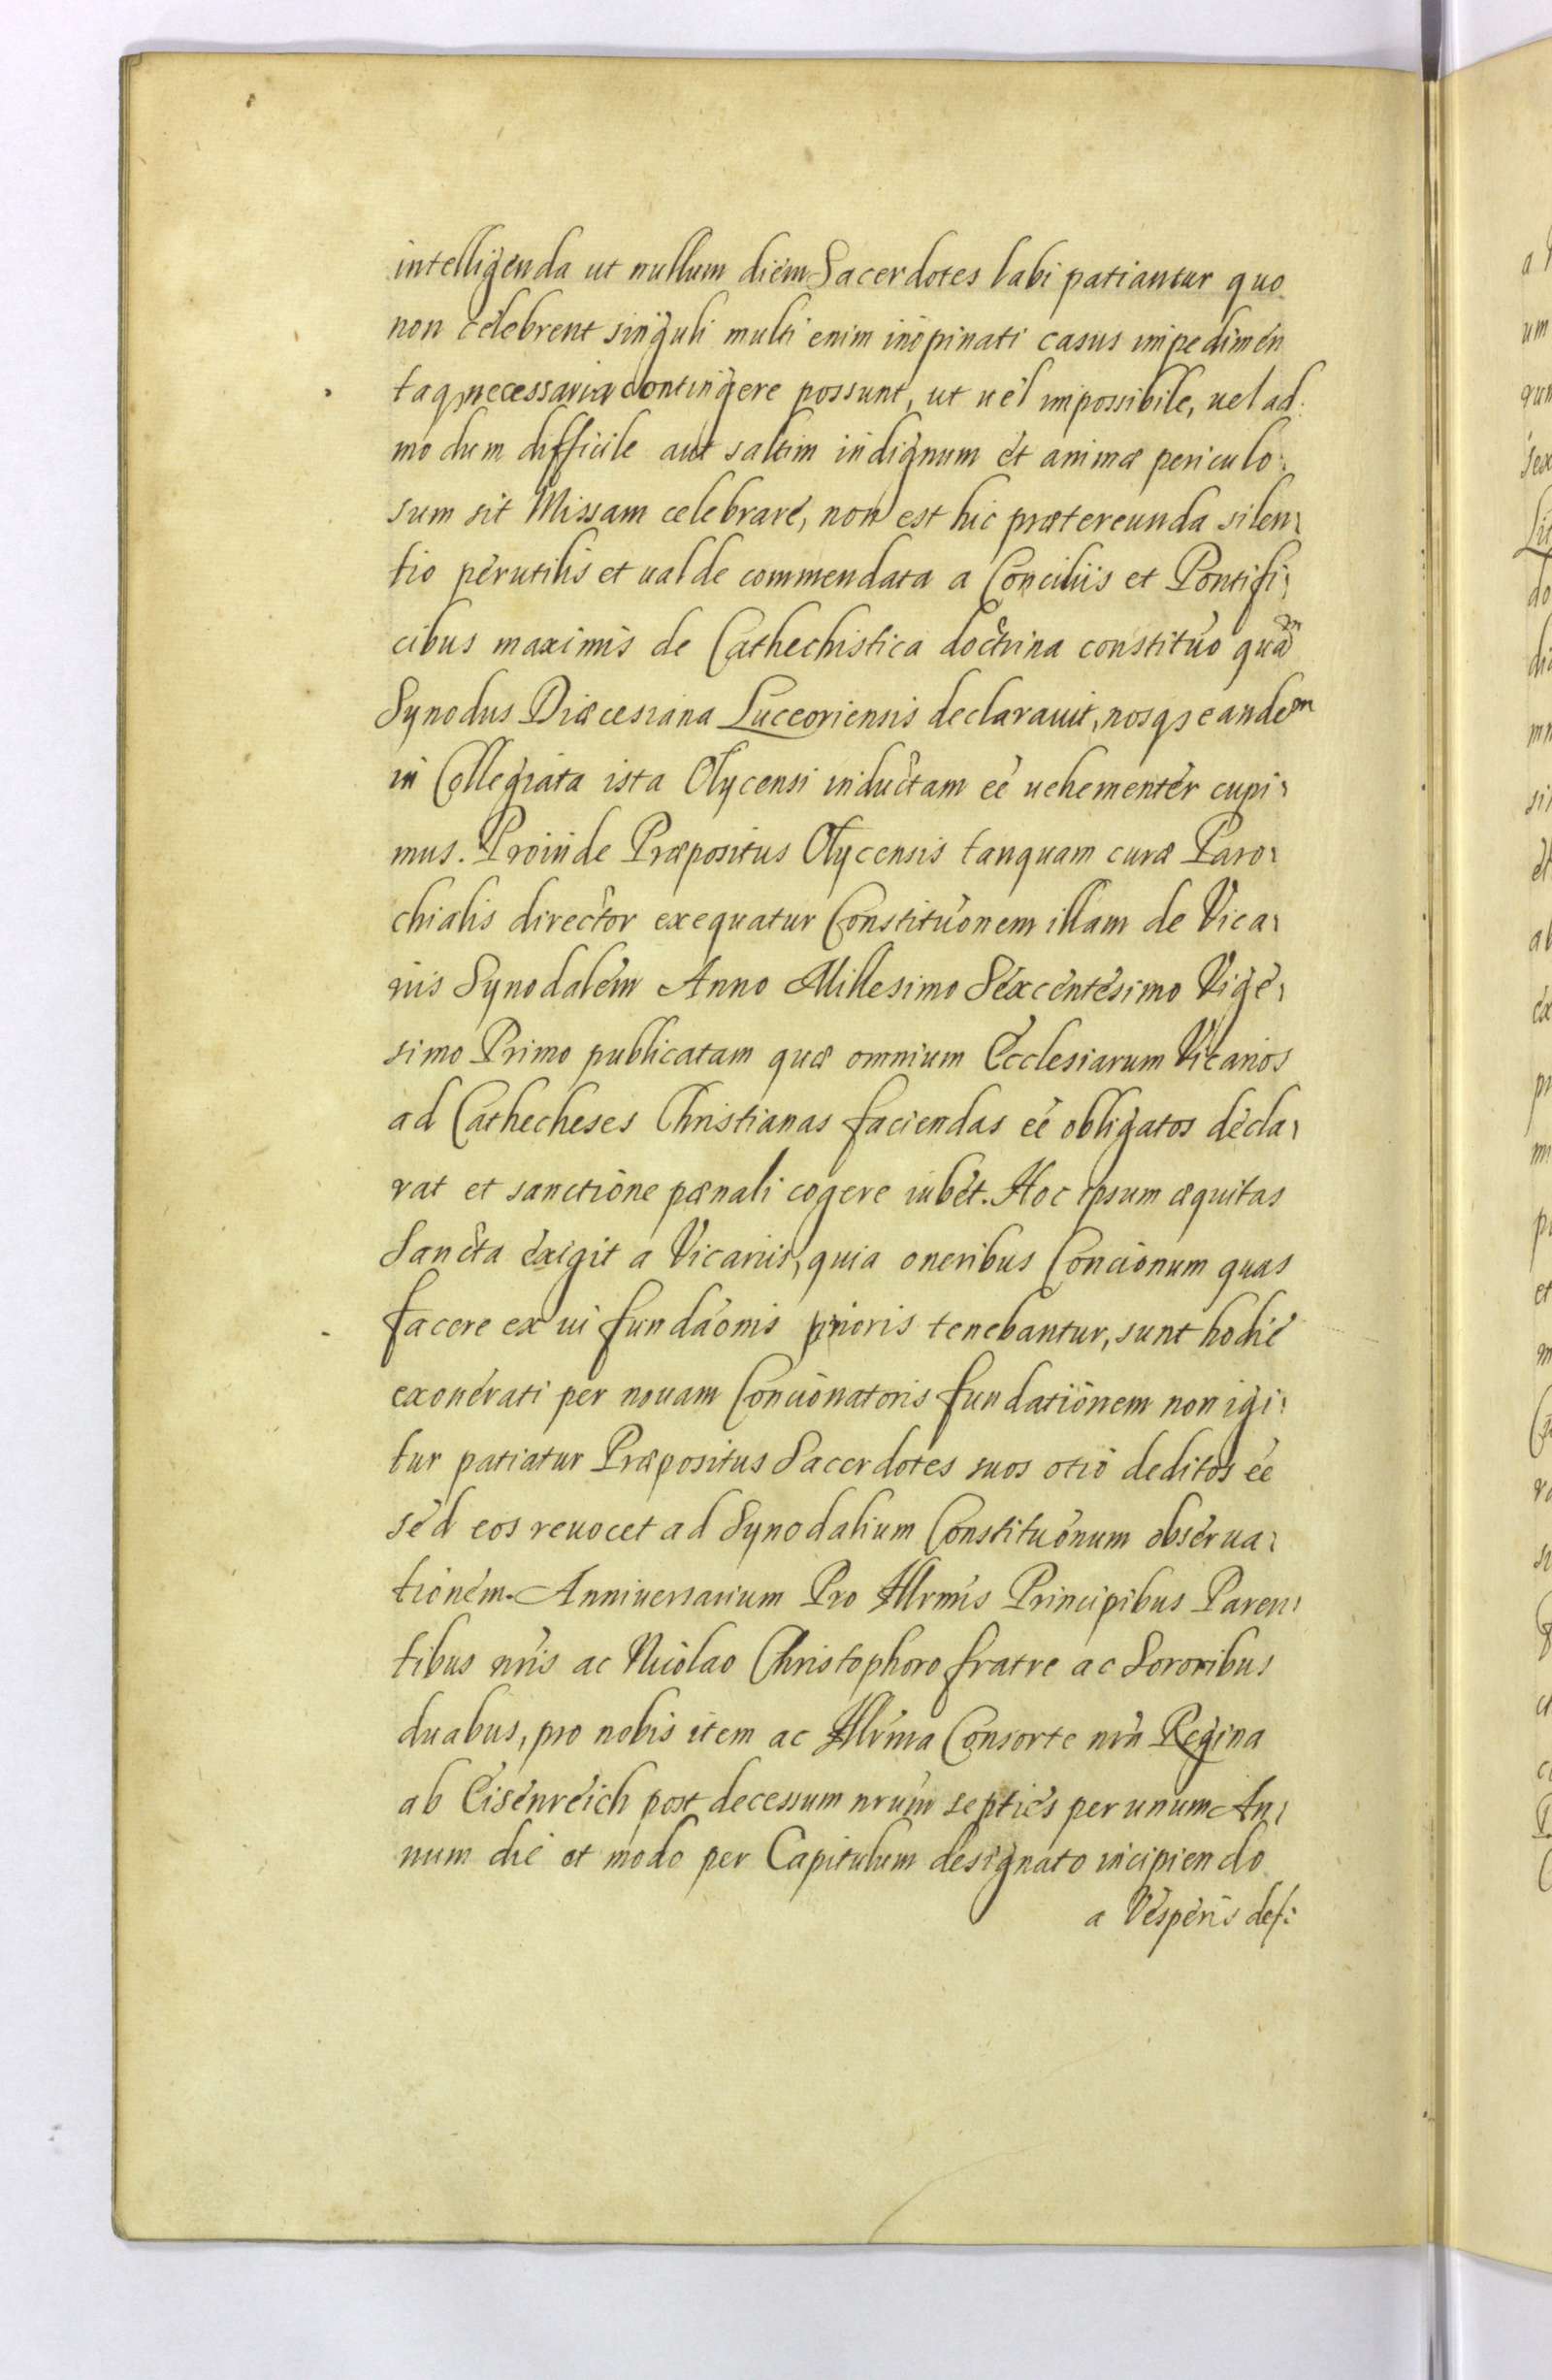 intelligenda ut nullum diem Sacerdotes labi patiantur quo
non celebrent singuli multi enim inopinati casus impedimen
taq; necessaria contingere possunt, ut uel impossibile, uel ad:
modum difficile aut saltim indignum et animæ periculo:
sum sit Missam celebrare, non est hic prætereunda silen:
tio perutilis et ualde commendata a Conciliis et Pontifi:
cibus maximis de Cathechistica doctrina constituo quam
Synodus Diæcesiana Luceoriensis declarauit, nosq; eandem
in Collegiata ista Olycensi inductam eé uehementer cupi:
mus. Proinde Præpositus Olycensis tanquam curæ Paro:
chialis director exequatur Constituonem illam de Vica:
riis Synodalem Anno Millesimo Sexcentesimo Vige:
simo Primo publicatam quæ omnium Ecclesiarum Vicarios
ad Cathecheses Christianas faciendas eé obligatos decla:
rat et sanctione pænali cogere iubet. Hoc ipsum æquitas
Sancta exigit a Vicariis, quia oneribus Concionum quas
facere ex ui fundaonis prioris tenebantur, sunt hodie
exonerati per nouam Concionatoris fundationem non igi:
tur patiatur Præpositus Sacerdotes suos otio deditos eé
sed eos reuocet ad Synodalium Constituonum obserua:
tionem. Anniuersarium Pro Illrmis Principibus Paren:
tibus nris ac Nicolao Christophoro fratre ac Sororibus
duabus, pro nobis item ac Illrma Consorte nra Regina
ab Eisenreich post decessum nrum septies per unum An:
num die et modo per Capitulum designato incipiendo
a Vesperis def: